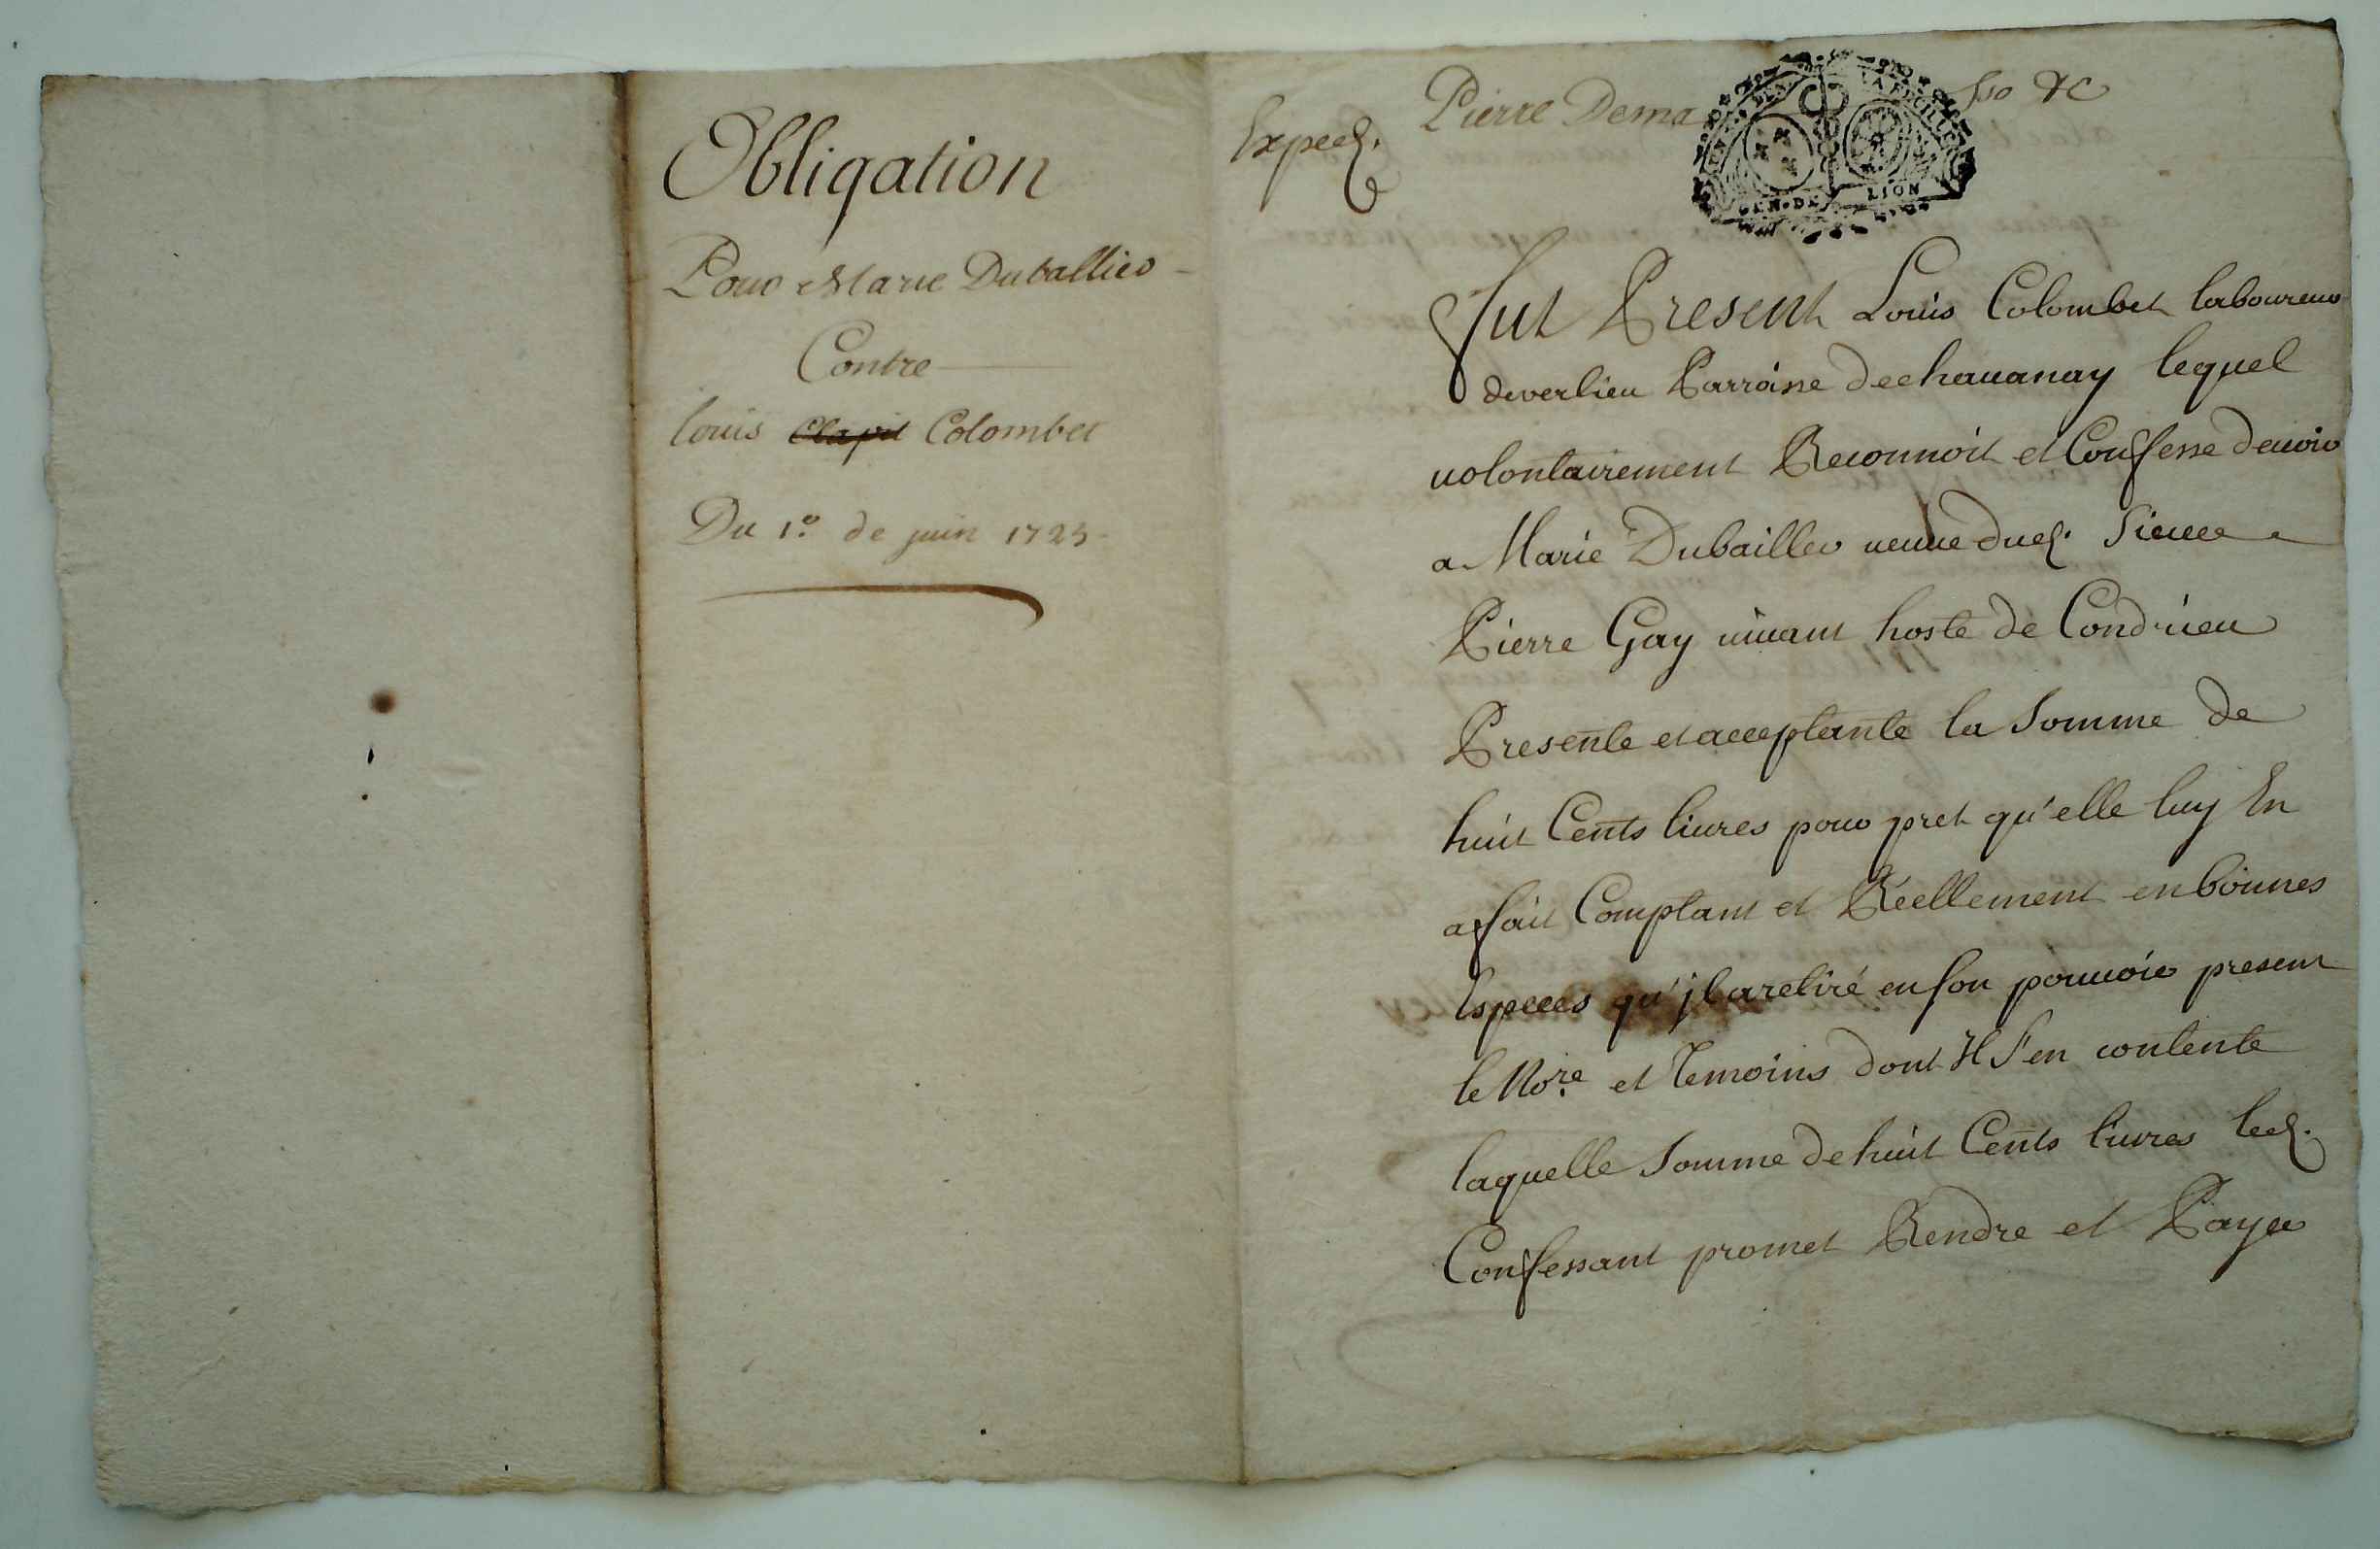 Obligation
Pour Marie Duballier
Contre
louis Clapit Colombet
Du 1.º de juin 1725
Exped.
Pierre Dema
&c
GEN·DE LION
Fut Present Louis Colombet laboureur
de verlieu Parroisse de chauanay lequel
uolontairement Reconnoit et Confesse deuoir
a Marie Duballier ueuue dud. Sieur
Pierre Gay uiuant hoste de Condrieu
Presente et acceptante la Somme de
huit Cents liures pour pret qu'elle luy En
a fait Comptant et Réellement en bonnes
Especes qu'jl a retiré en son pouuoir present
le No.re et Temoins dont Il s'en contente
laquelle Somme de huit Cents liures led.
Confessant promet Rendre et Payer